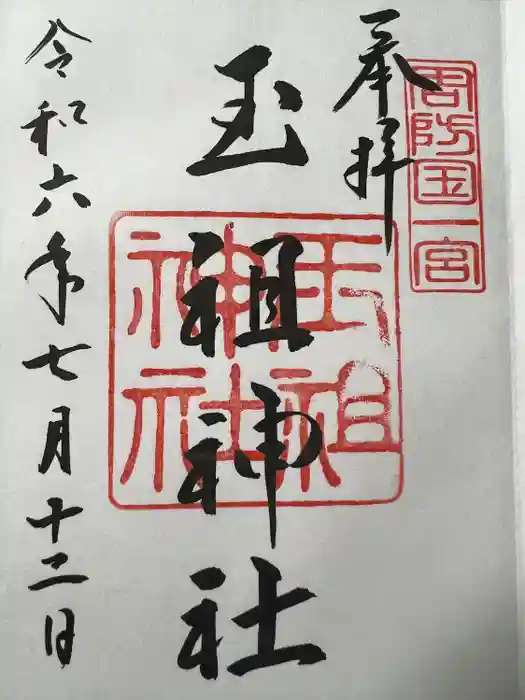 周防国一宮
奉拝
玉祖神社
玉祖神社
令和六年七月十二日